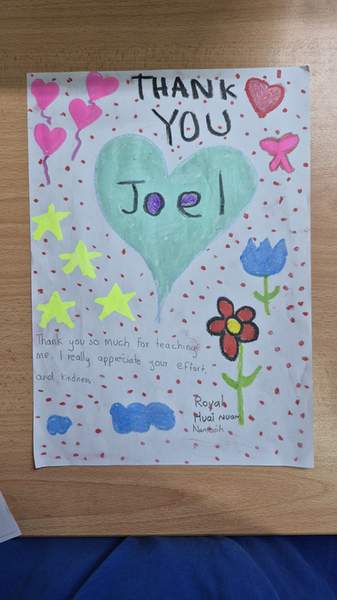 THANK
YOU
Joel
Thank you so much for teaching
me. I really appreciate your effort,
and kindness.
Royal
Huai Nuam